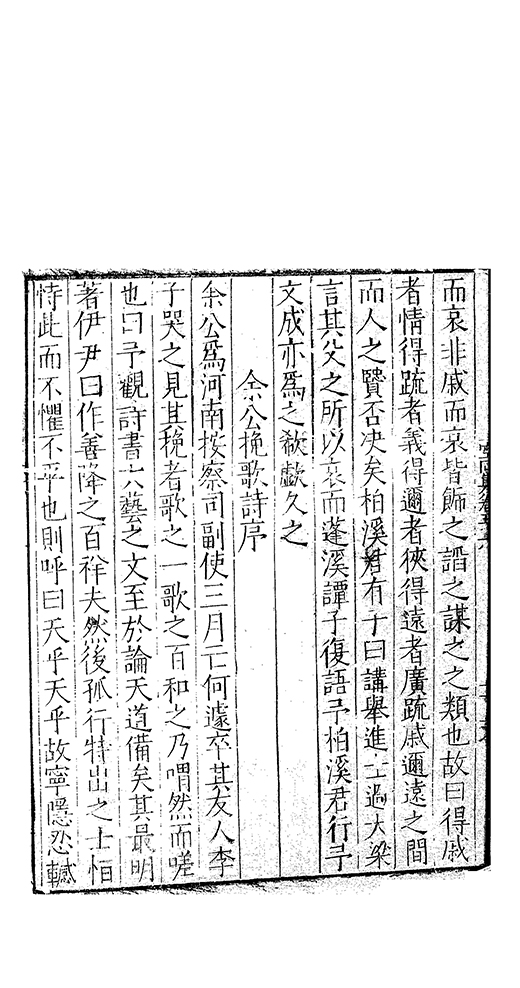 而哀非戚而哀皆餙之謟之謀之之類也故曰得戚
者情得疏者義得邇者俠得遠者廣疏戚邇遠之間
而人之賢否决矣柏溪君有子曰講舉進士過大梁
言其父之所以哀而蓬溪譚子復語予柏溪君行予
文成亦爲之欷歔久之
余公挽歌詩序
余公爲河南按察司副使三月亡何遽卒其友人李
子哭之見其挽者歌之一歌之百和之乃喟然而嗟
也曰予觀詩書六藝之文至於論天道備矣其最明
著伊尹曰作善降之百祥夫然後孤行特出之士恒
恃此而不懼不平也則呼曰天乎天乎故寧隱忍轗